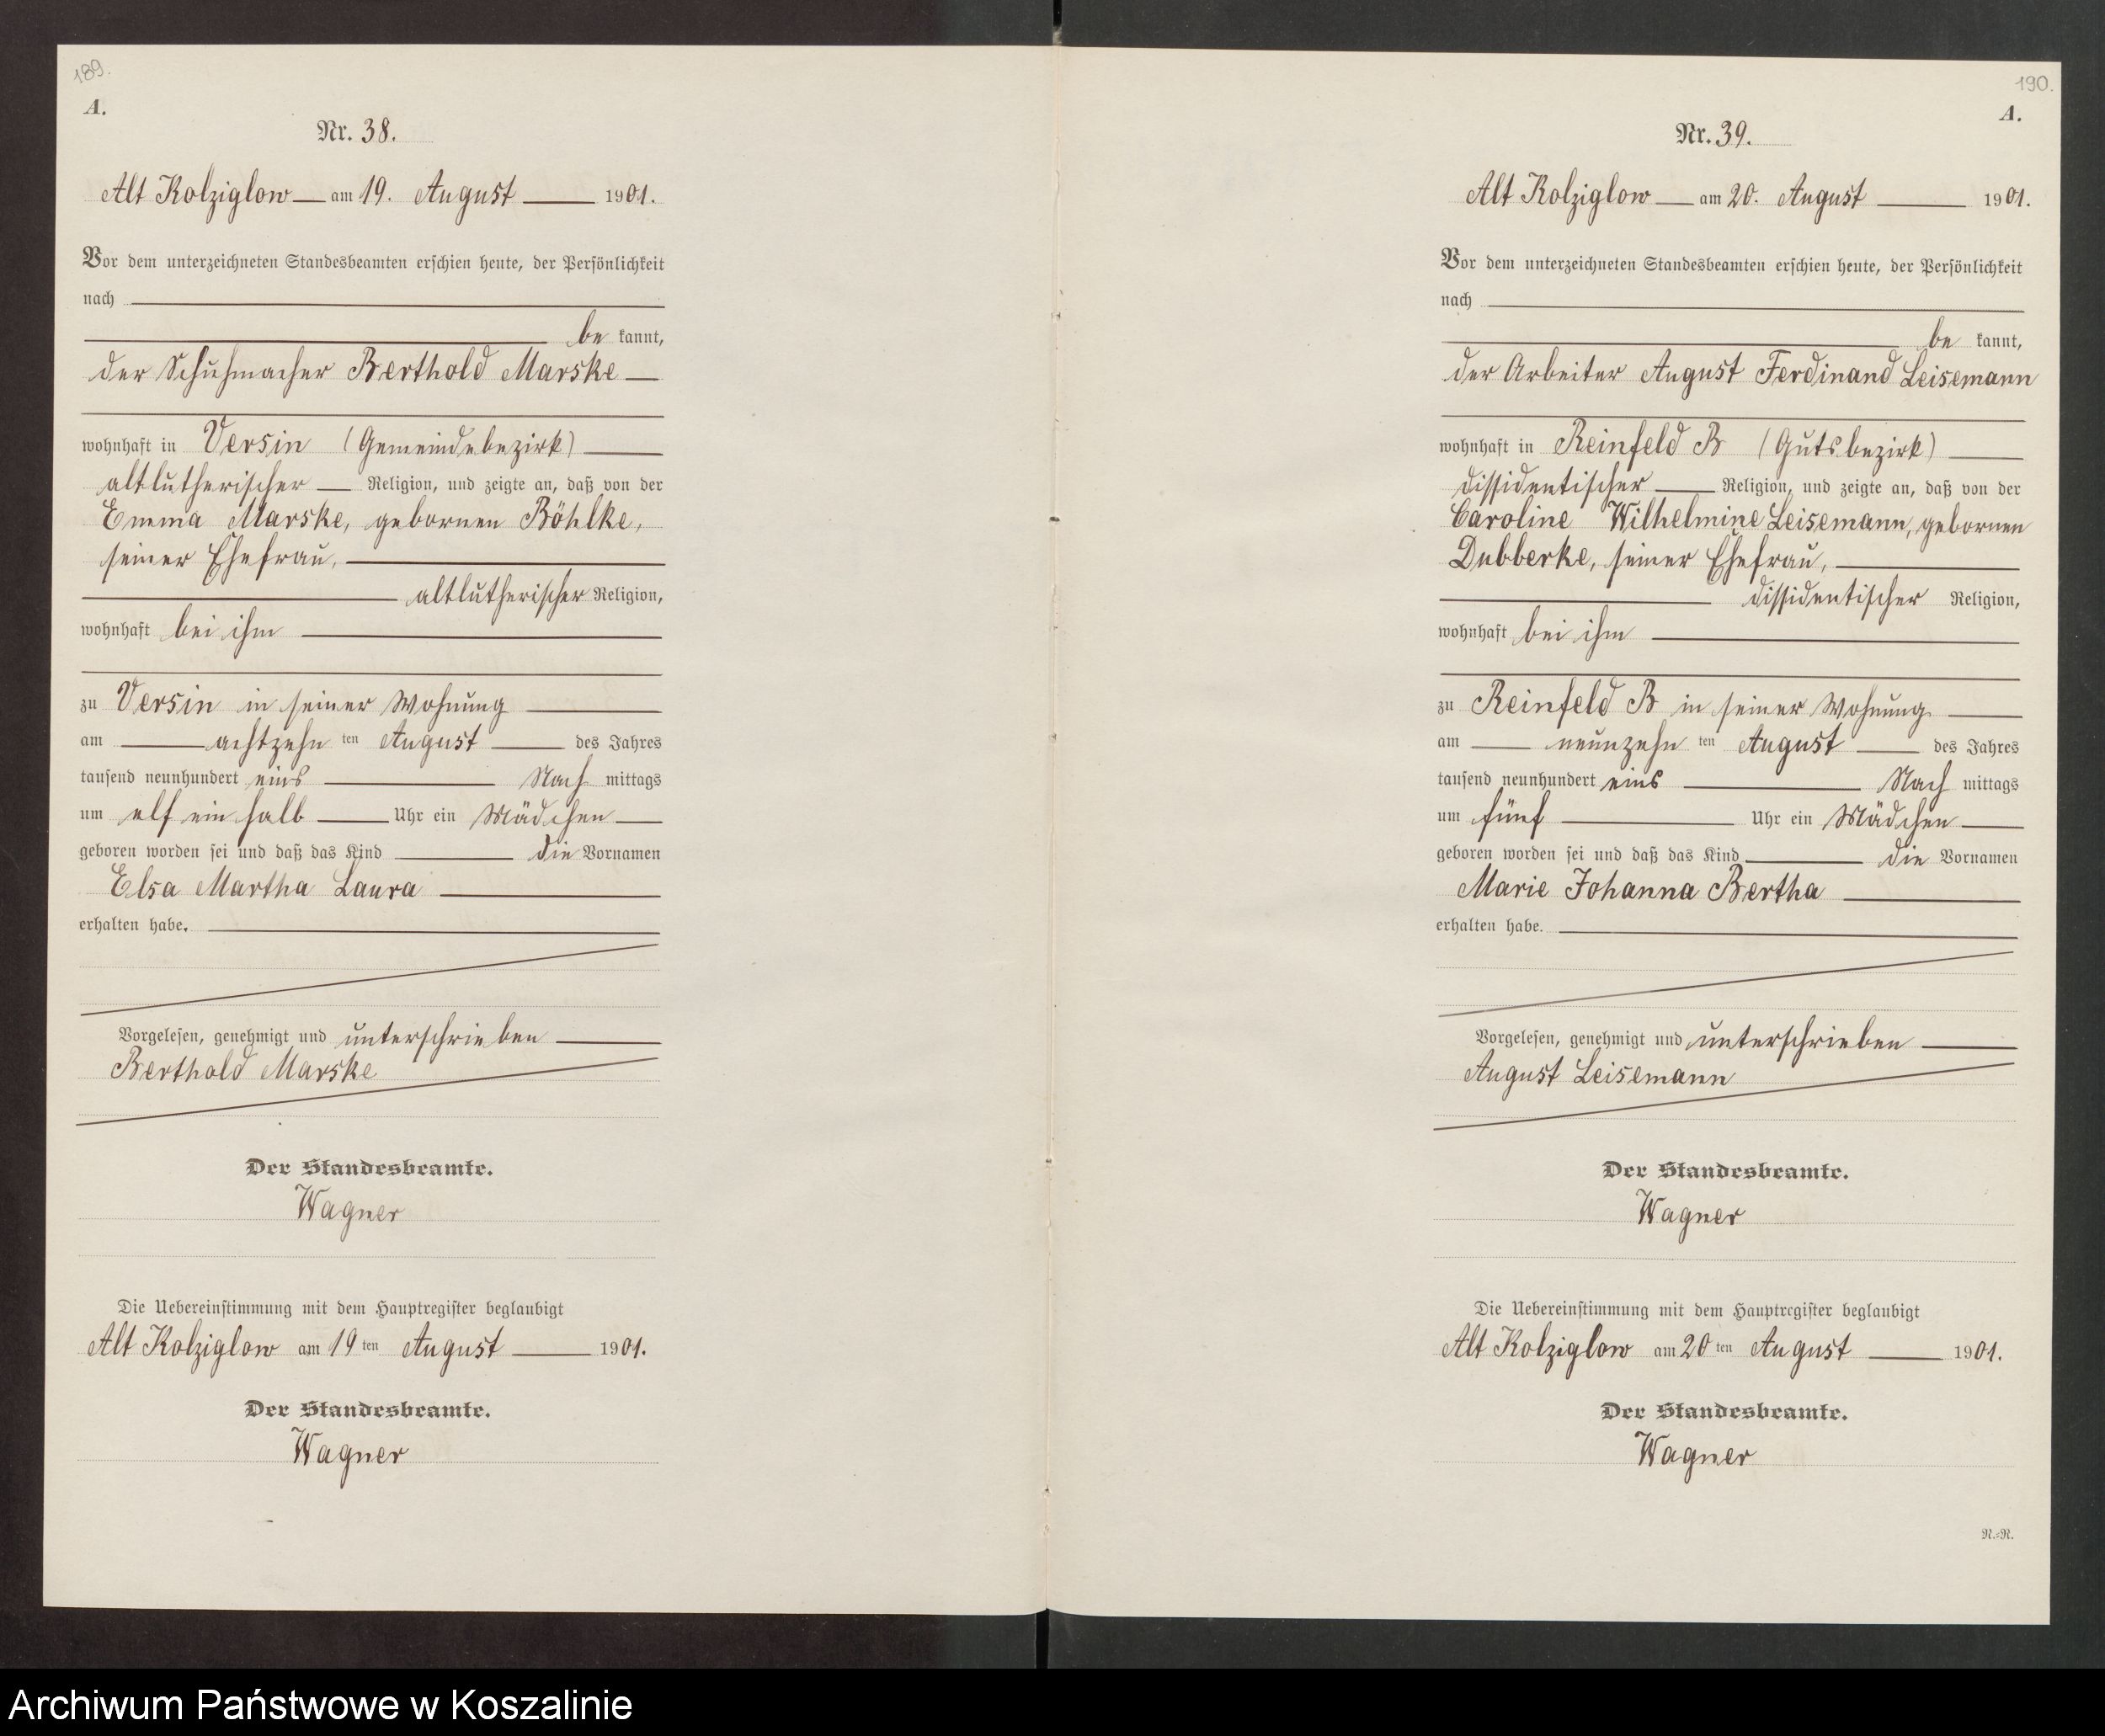 189.
A.
Nr. 38.
Alt Kolziglow am 19. August 1901.
Vor dem unterzeichneten Standesbeamten erschien heute, der Persönlichkeit
nach
be kannt,
der Schuhmacher Berthold Marske
wohnhaft in Versin (Gemeindebezirk)
altlutherischer Religion, und zeigte an, daß von der
Emma Marske, gebornen Böhlke,
seiner Ehefrau,
altlutherischer Religion,
wohnhaft bei ihm
zu Versin in seiner Wohnung
am achtzehn ten August des Jahres
tausend neunhundert eins Nach mittags
um elf ein halb Uhr ein Mädchen
geboren worden sei und daß das Kind die Vornamen
Elsa Martha Laura
erhalten habe.
Vorgelesen, genehmigt und unterschrieben
Berthold Marske
Der Standesbeamte.
Wagner
Die Uebereinstimmung mit dem Hauptregister beglaubigt
Alt Kolziglow am 19 ten August 1901.
Der Standesbeamte.
Wagner
190.
A.
Nr. 39.
Alt Kolziglow am 20. August 1901.
Vor dem unterzeichneten Standesbeamten erschien heute, der Persönlichkeit
nach
be kannt,
der Arbeiter August Ferdinand Leisemann
wohnhaft in Reinfeld B (Gutsbezirk)
dissidentischer Religion, und zeigte an, daß von der
Caroline Wilhelmine Leisemann, gebornen
Dubberke, seiner Ehefrau,
dissidentischer Religion,
wohnhaft bei ihm
zu Reinfeld B in seiner Wohnung
am neunzehn ten August des Jahres
tausend neunhundert eins Nach mittags
um fünf Uhr ein Mädchen
geboren worden sei und daß das Kind die Vornamen
Marie Johanna Bertha
erhalten habe.
Vorgelesen, genehmigt und unterschrieben
August Leisemann
Der Standesbeamte.
Wagner
Die Uebereinstimmung mit dem Hauptregister beglaubigt
Alt Kolziglow am 20 ten August 1901.
Der Standesbeamte.
Wagner
N.=R.
Archiwum Państwowe w Koszalinie